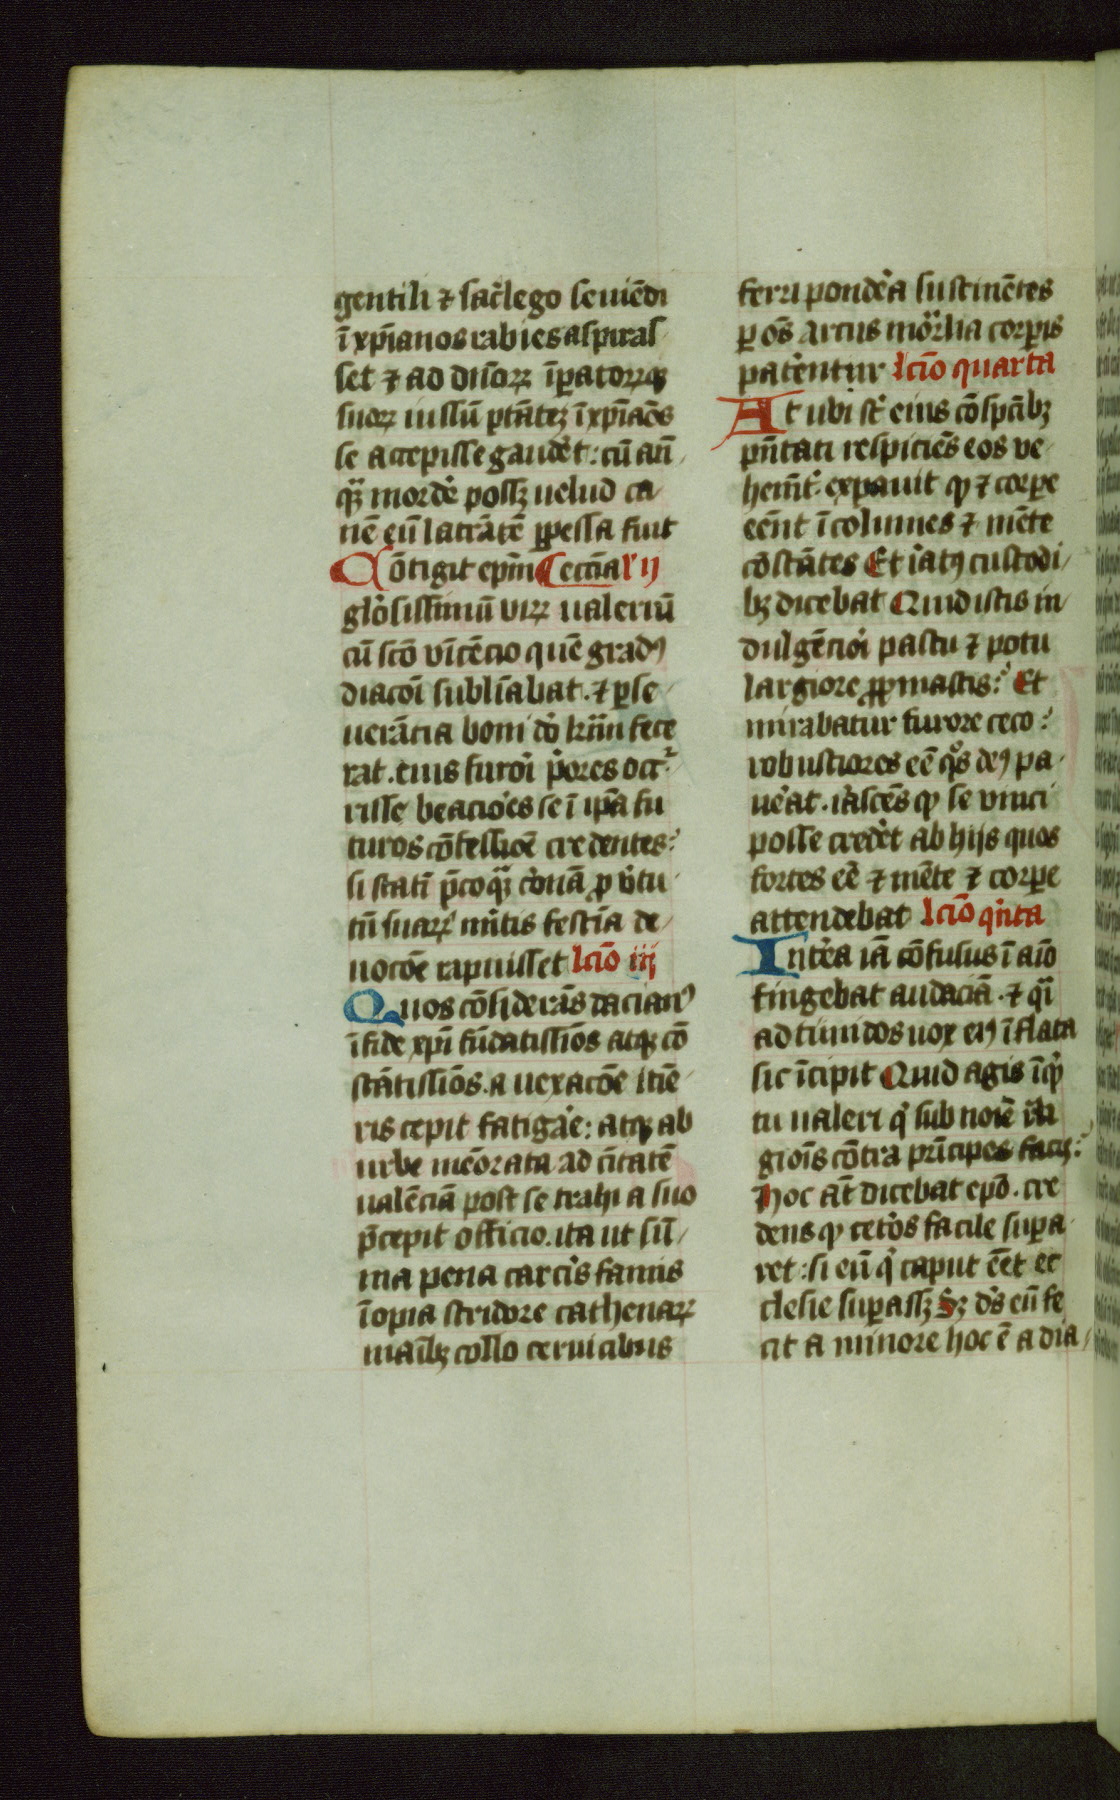 gentili ⁊ sac̓lego seuiēdi
ī xp̄ianos rabies aspiras
set ⁊ ad diuoꝝ īꝑatoꝝqꝫ
suoꝝ iussū ptātēꝫ ī xp̄iāos
se accepisse gaudet: cū añ
qꝫ morde᷑ possꝫ uelud ca
nē eū latrātē ꝑpessa fuit
Cōtigit epm̄ Lectiā ii
glōsissimū viꝝ ualeriū
cū scō vīcēcio quē gradꝰ
diacōi sublīabat . ⁊ ꝑse
uerātia boni dō kr̄im fece
rat . eius furōi p̓ores occᷣ
risse beaciōēs se ī ip̄a fu
turos cōfessiōē credentes:
si statī p̄coqꝫ c̓onā ꝓ v̓tu
tū suaꝝ mītis festīa de
uocōē rapuisset lcīo iij
Quos cōsiderās dacianꝰ
ī fide xp̄i fūdatissiōs atqꝫ cō
stātissiōs . a uexacōē itīe
ris cepit fatigāe: atqꝫ ab
urbe meōrata ad ciītatē
ualēciā post se trahi a suo
p̄cepit officio . ita ut sū
ma pena carcīs famis
īopia stridore cathenaꝝ
maībꝫ collo ceruicibus
ferri pondēa sustinētes
ꝑ oēs artus mor̄lia corꝑis
patēntur lcīo quarta
At ubi st̄ eius cōspc̄ibꝫ
p̄ntati respiciēs eos ve
hem̄t᷑ . expauit qꝫ ⁊ corꝑe
eēnt īcolumes ⁊ mēte
cōstātes Et iratꝰ custodi
bꝫ dicebat Quid istis in
dulgēciōi pastu ⁊ potu
largiore ꝓpinastis: Et
mirabatur furore ceco:
robustiores eē qōs deꝰ pa
ueāt . iāscēs qꝫ se vinci
posse credēt ab hijs quos
fortes eē ⁊ mēte ⁊ corꝑe
attendebat lcīo qīnta
Intēa iā cōfusus ī aīo
fingebat audaciā . ⁊ qī
ad timidos uox eiꝰ īflata
sic īcipit Quid agis īqꝫ
tu ualeri q̓ sub noīe r̓li
gioīs cōtra prīcipes facis:
Hoc at̄ dicebat epō . cre
dens qꝫ cetōs facile suꝑa
ret: si eū q̓ caput eēt ec
clesie suꝑassꝫ Sꝫ dn̄s eū fe
cit a minore hoc ē a dia